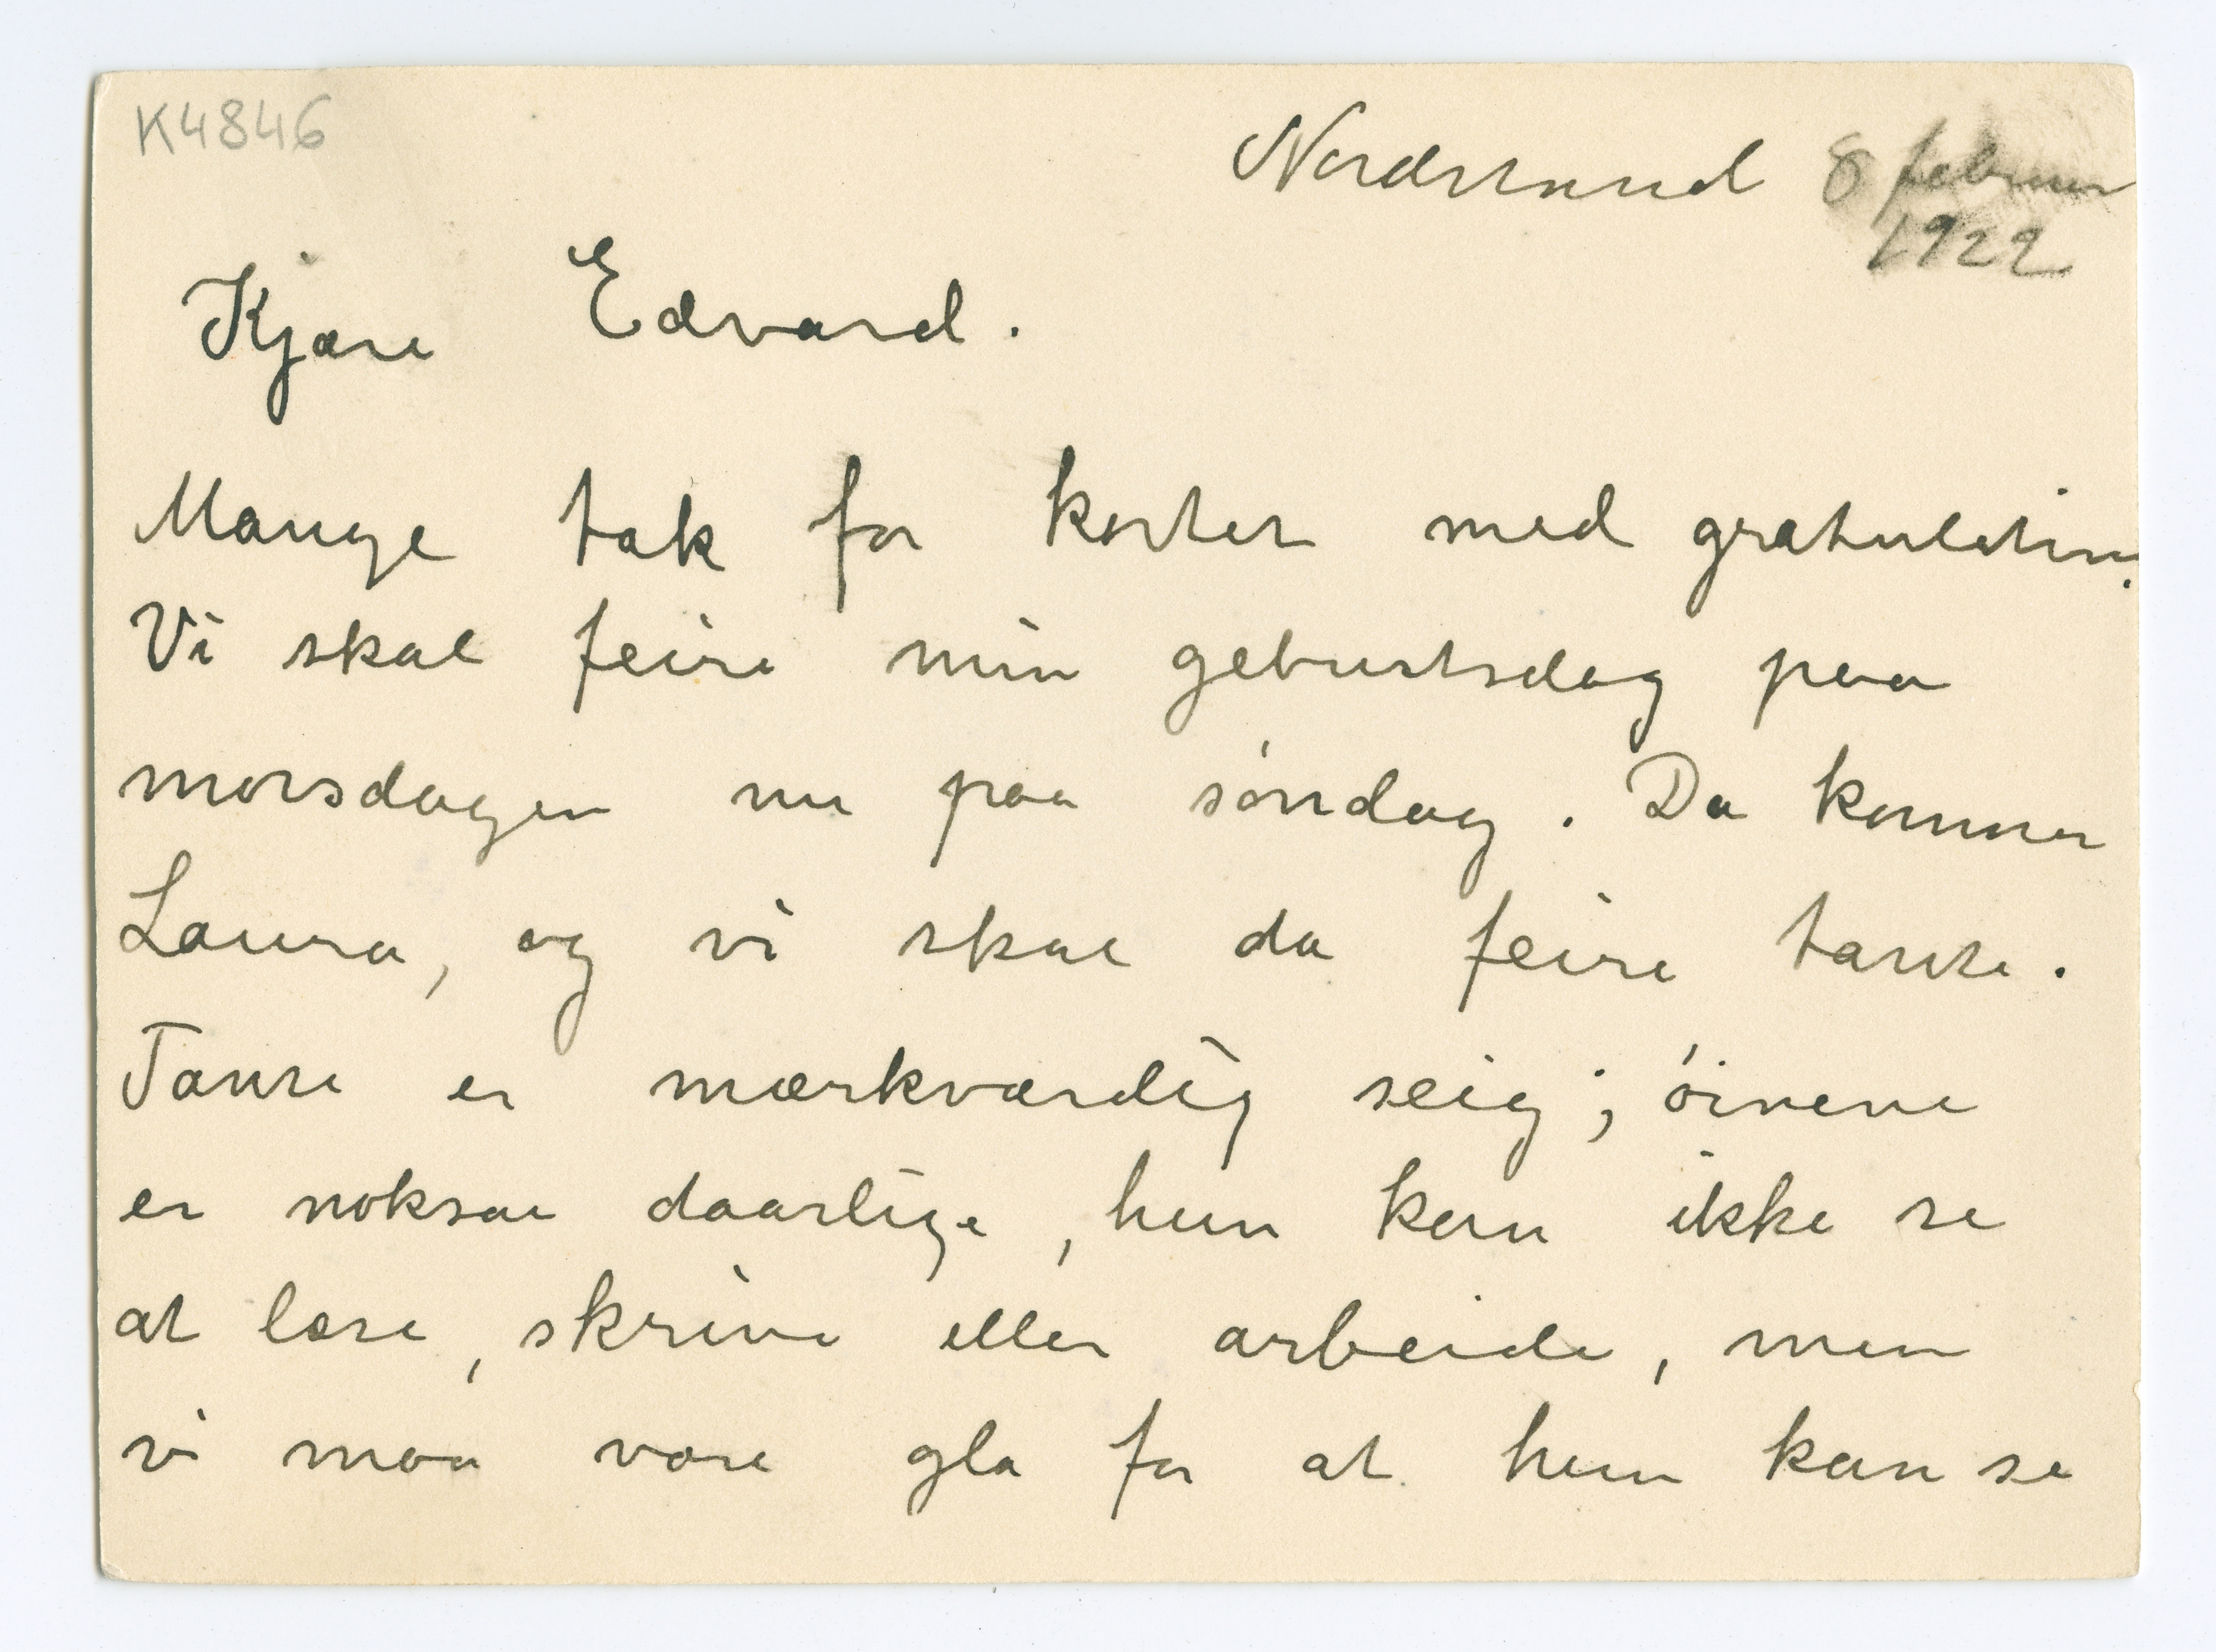 K4846
Nordstrand 8 februar
1922
Kjære Edvard.
Mange tak for kortet med gratulation.
Vi skal feire min geburtsdag paa
morsdagen nu paa søndag. Da kommer
Laura, og vi skal da feire tante.
Tante er mærkværdig seig; øinene
er noksaa daarlige, hun kan ikke se
at læse, skrive eller arbeide, men
vi maa være gla for at hun kan se